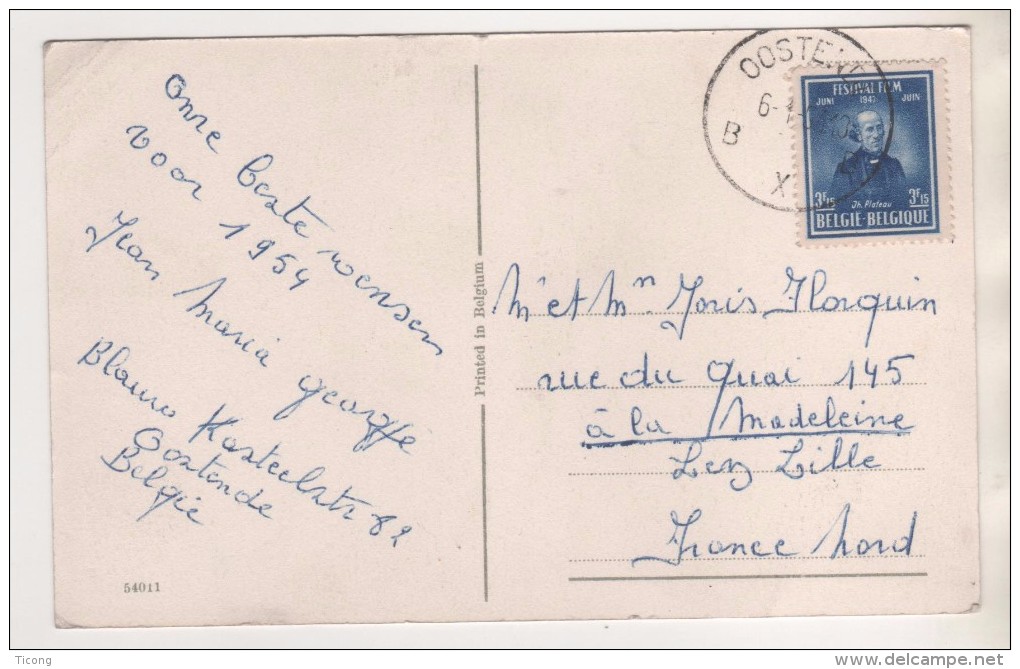 Onze beste wensen
voor 1954
Jean Maria George
Blauw Kasteelstr 82
Oostende
België
54011
Printed in Belgium
OOSTEN
6-1
B
X
FESTIVAL FILM
JUNI 1947 JUIN
3F15 Jh. Plateau 3F15
BELGIE-BELGIQUE
Mr et Mn Joris Florquin
rue du Quai 145
à la Madeleine
Lez Lille
France Nord
Ticong
delcampe.net